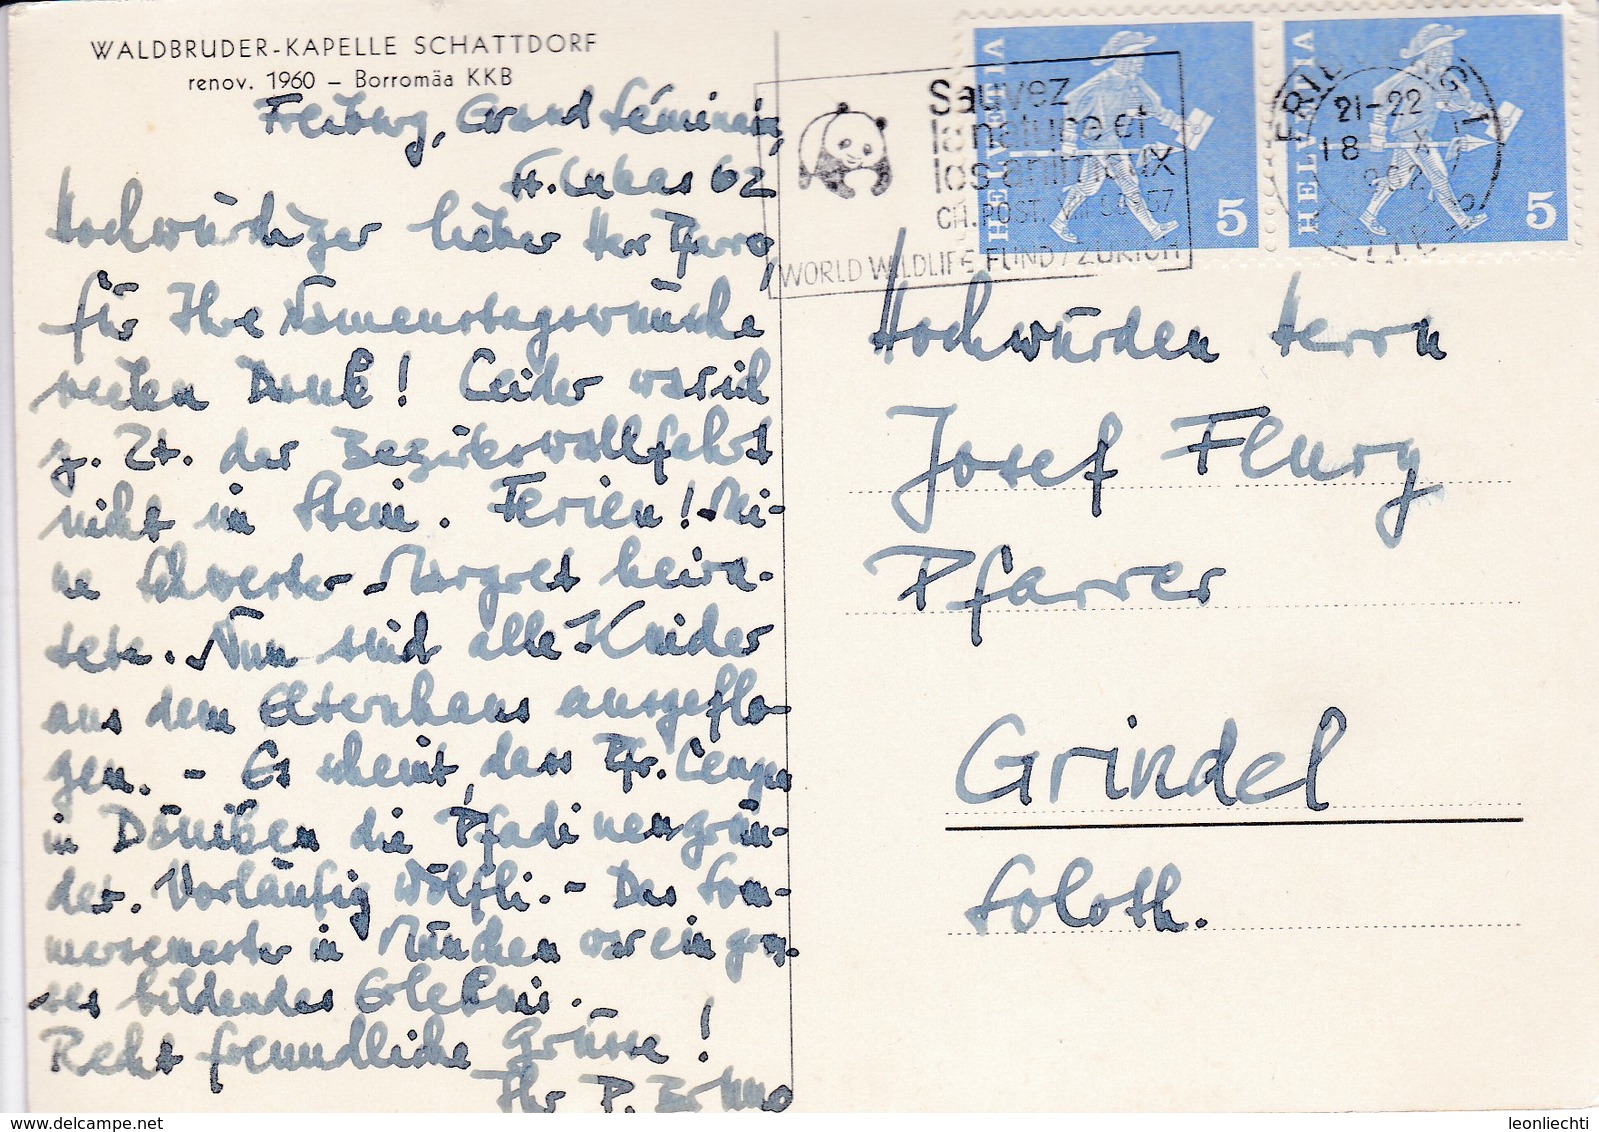 WALDBRUDER-KAPELLE SCHATTDORF
renov. 1960 – Borromäa KKB
Freiburg, Grand Séminaire,
St. Lukas 62
Hochwürdiger lieber Herr Pfarrer,
für Ihre Namenstagswünsche
vielen Dank! Leider war ich
z. Zt. der Bezirkswallfahrt
nicht in Stein. Ferien! Mei-
ne Schwester Margret heira-
tete. Nun sind alle Kinder
aus dem Elternhaus ausgeflo-
gen. – Es scheint, dass Pfr.
in Däniken die Pfadi neugrün-
det. Vorläufig Wölfli. – Das Som-
mersemester in München war ein gros-
ses bildendes Erlebnis.
Recht freundliche Grüsse!
Ihr P. Bruno
Sauvez
la nature et
les animaux
WORLD WILDLIFE FUND / ZÜRICH
HELVETIA
5
HELVETIA
5
21-22
18 X
Hochwürden Herrn
Josef Flury
Pfarrer
Grindel
Soloth.
leonliechti